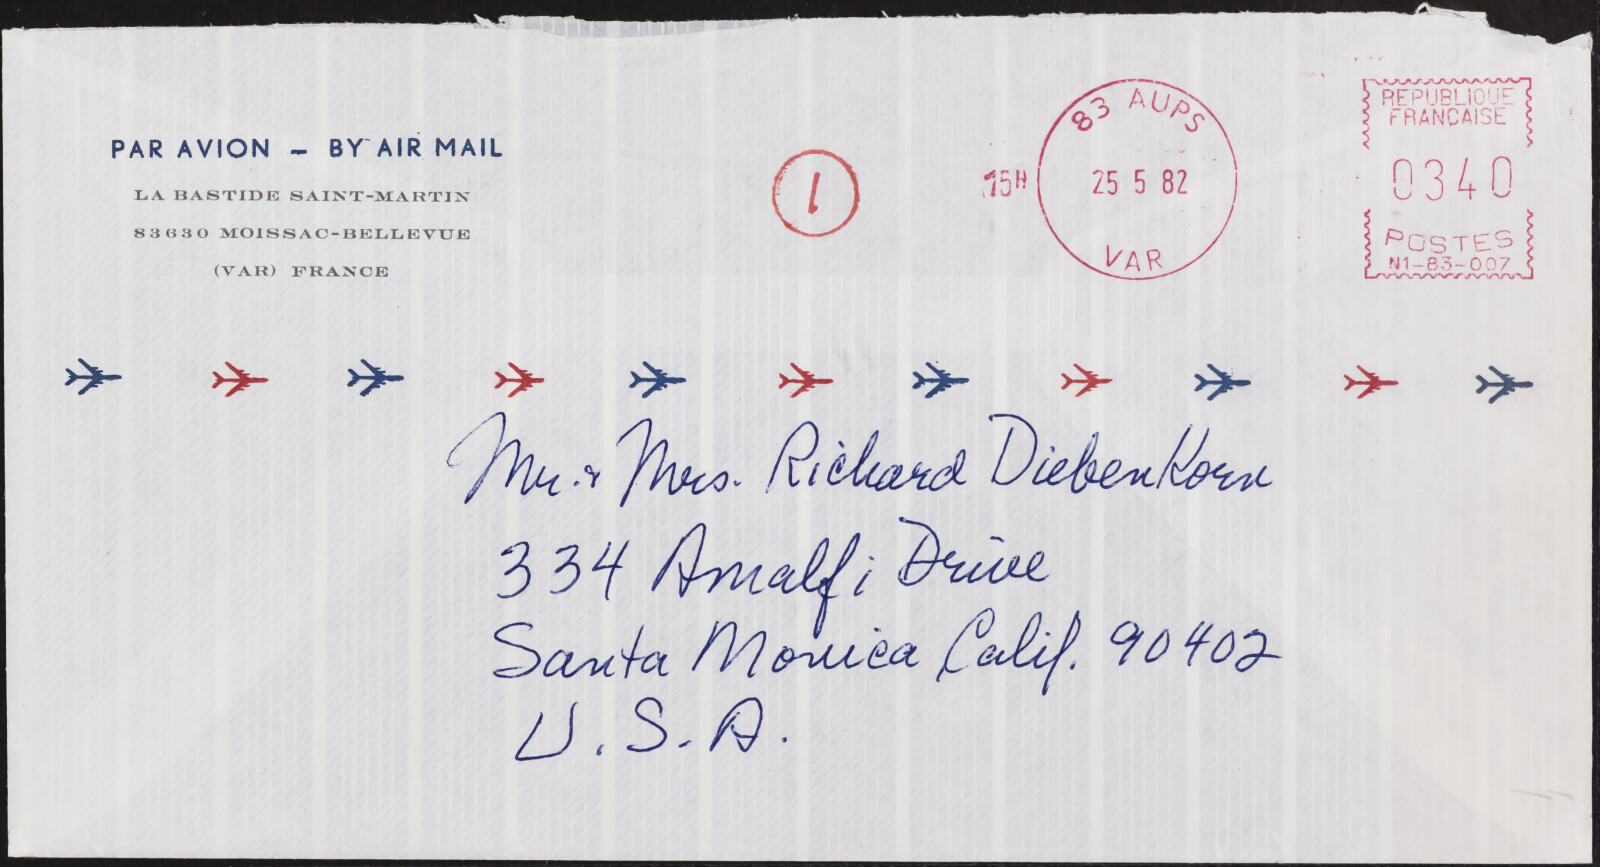 PAR AVION – BY AIR MAIL
LA BASTIDE SAINT-MARTIN
83630 MOISSAC-BELLEVUE
(VAR) FRANCE
1
15H
83 AUPS
25 5 82
VAR
REPUBLIQUE
FRANCAISE
0340
POSTES
N1-83-007
Mr. & Mrs. Richard DiebenKorn
334 Amalfi Drive
Santa Monica Calif. 90402
U.S.A.